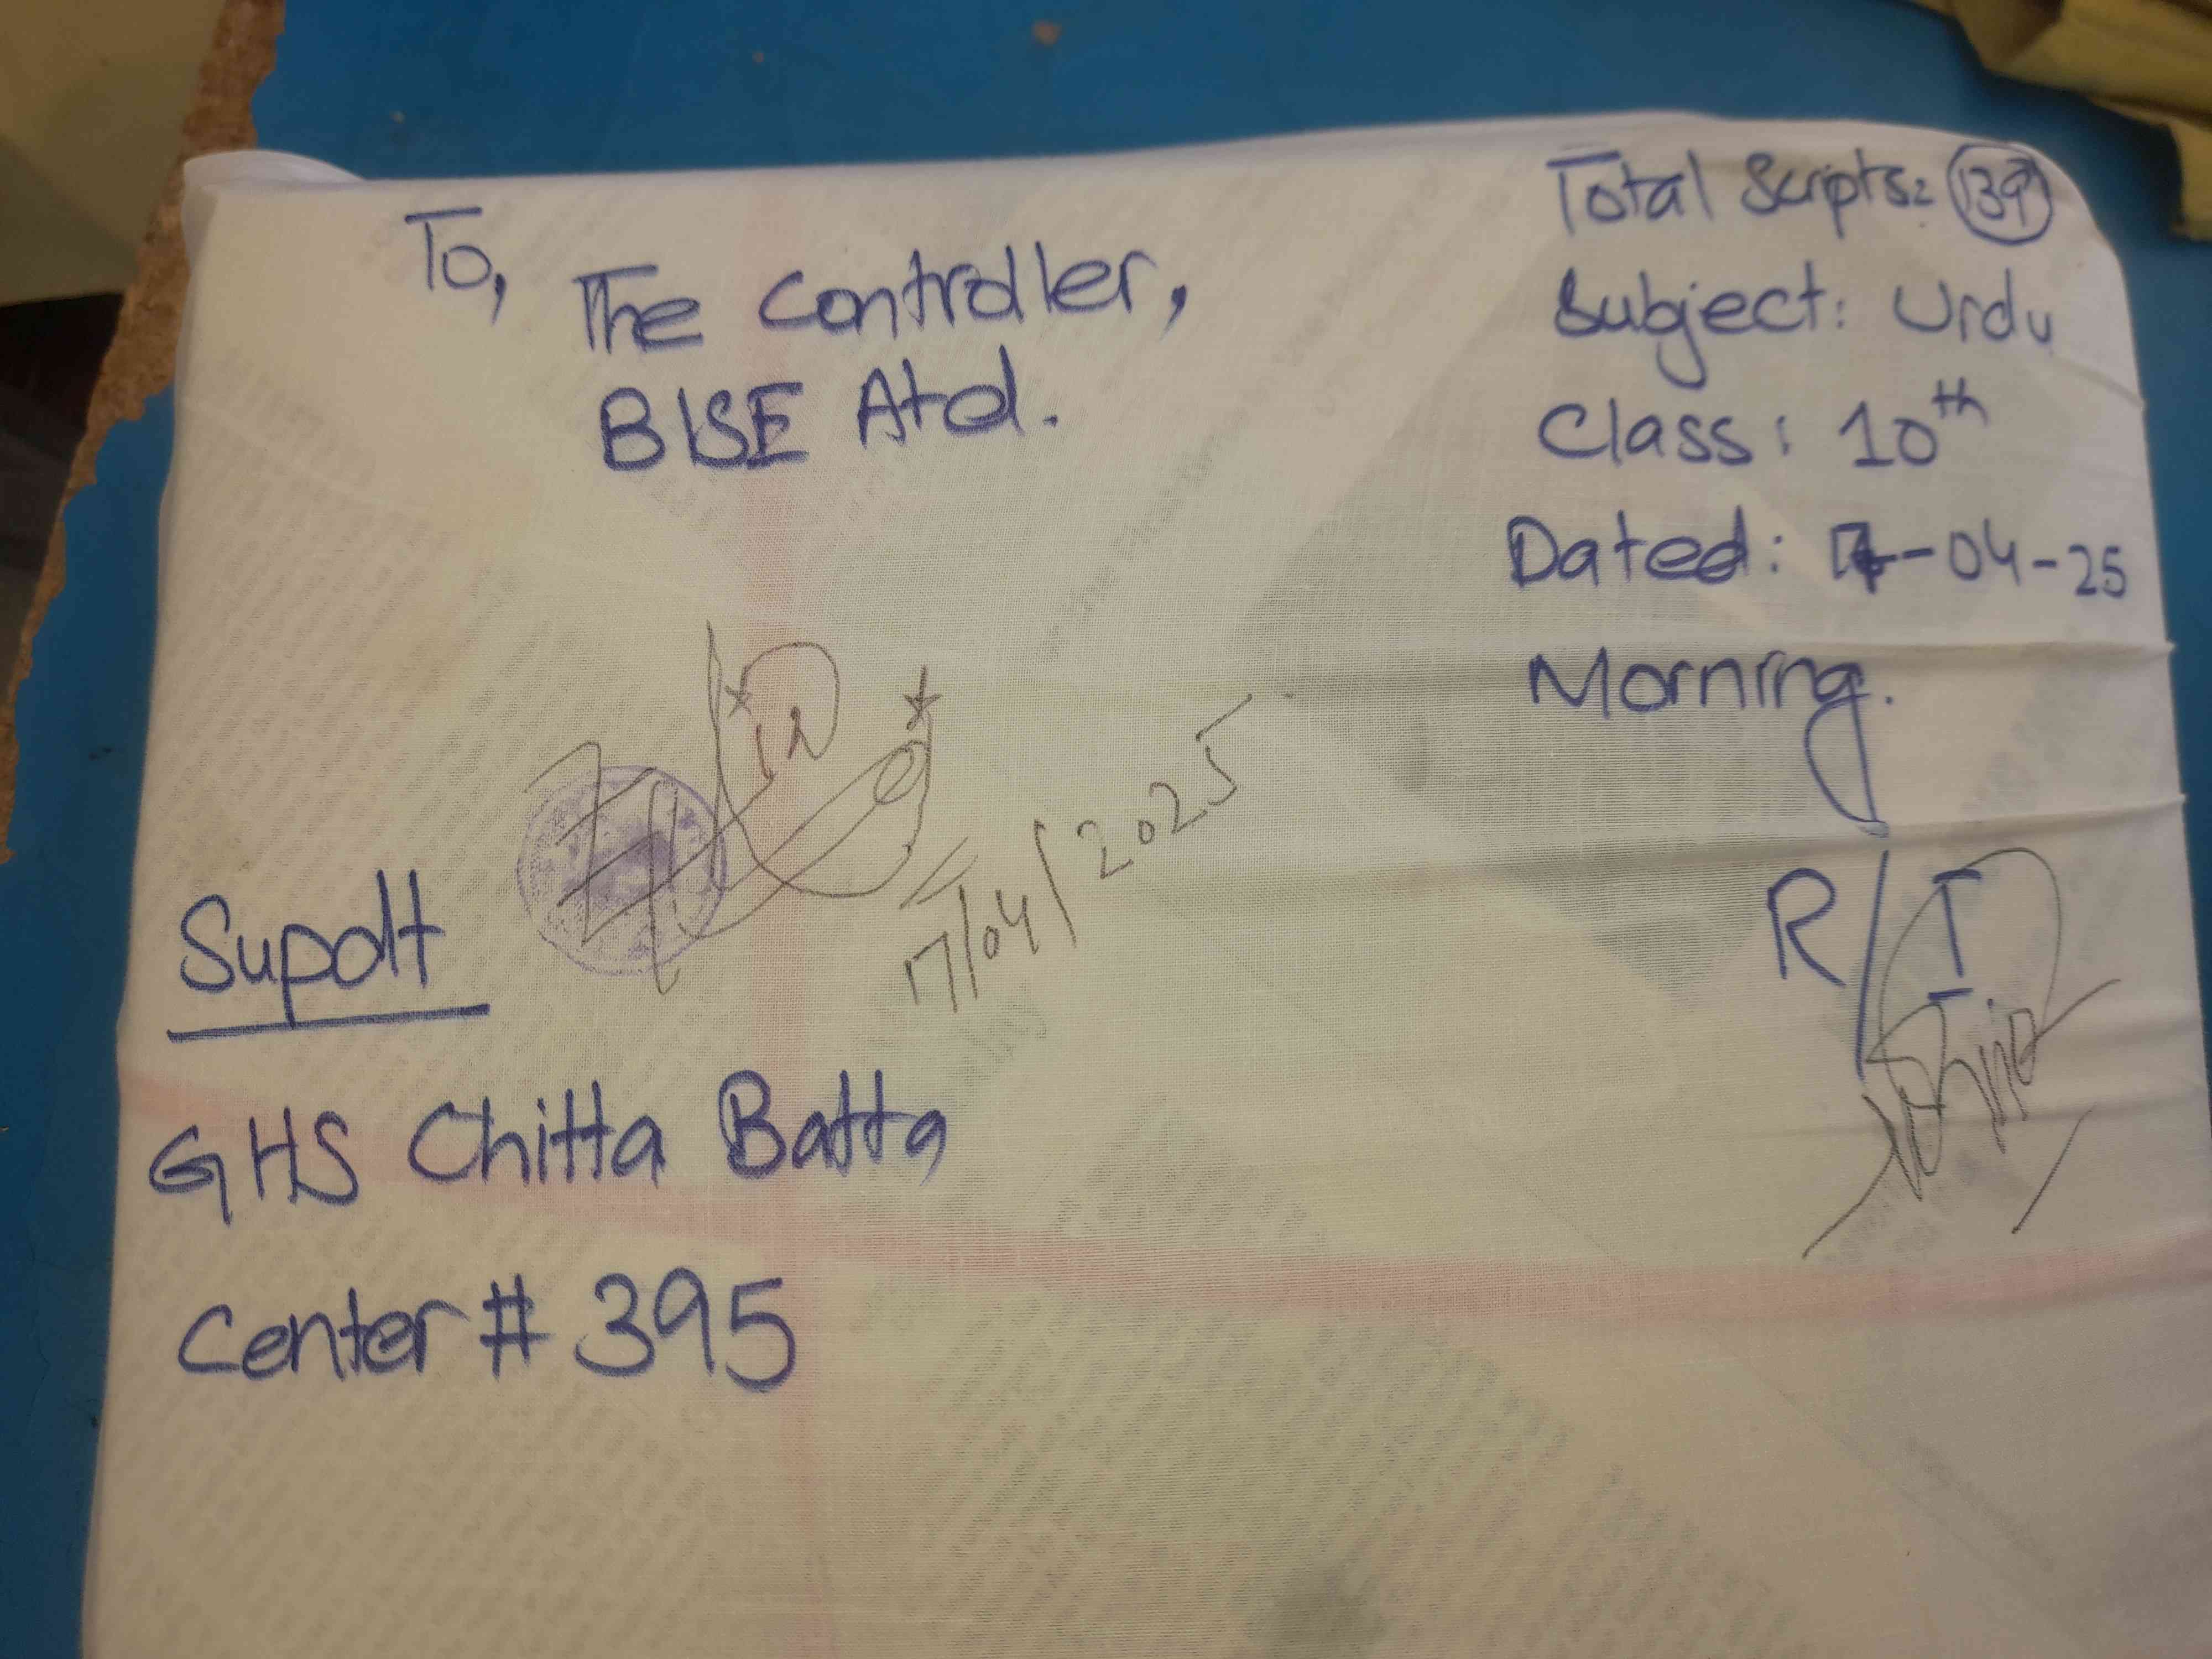 To,
The Controller,
BISE Atd.
Total Scripts: 139
Subject: Urdu
Class: 10th
Dated: 17-04-25
Morning.
17/04/2025
R/T
Supdtt
GHS Chitta Batta
Center # 395